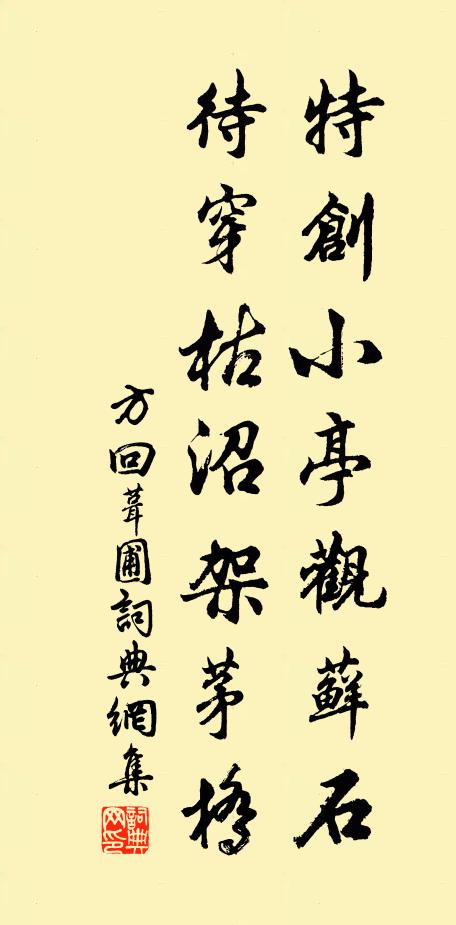 特創小亭觀蘚石
待穿枯沼架茅橋
方回葺圃詞典網集
詞典網印